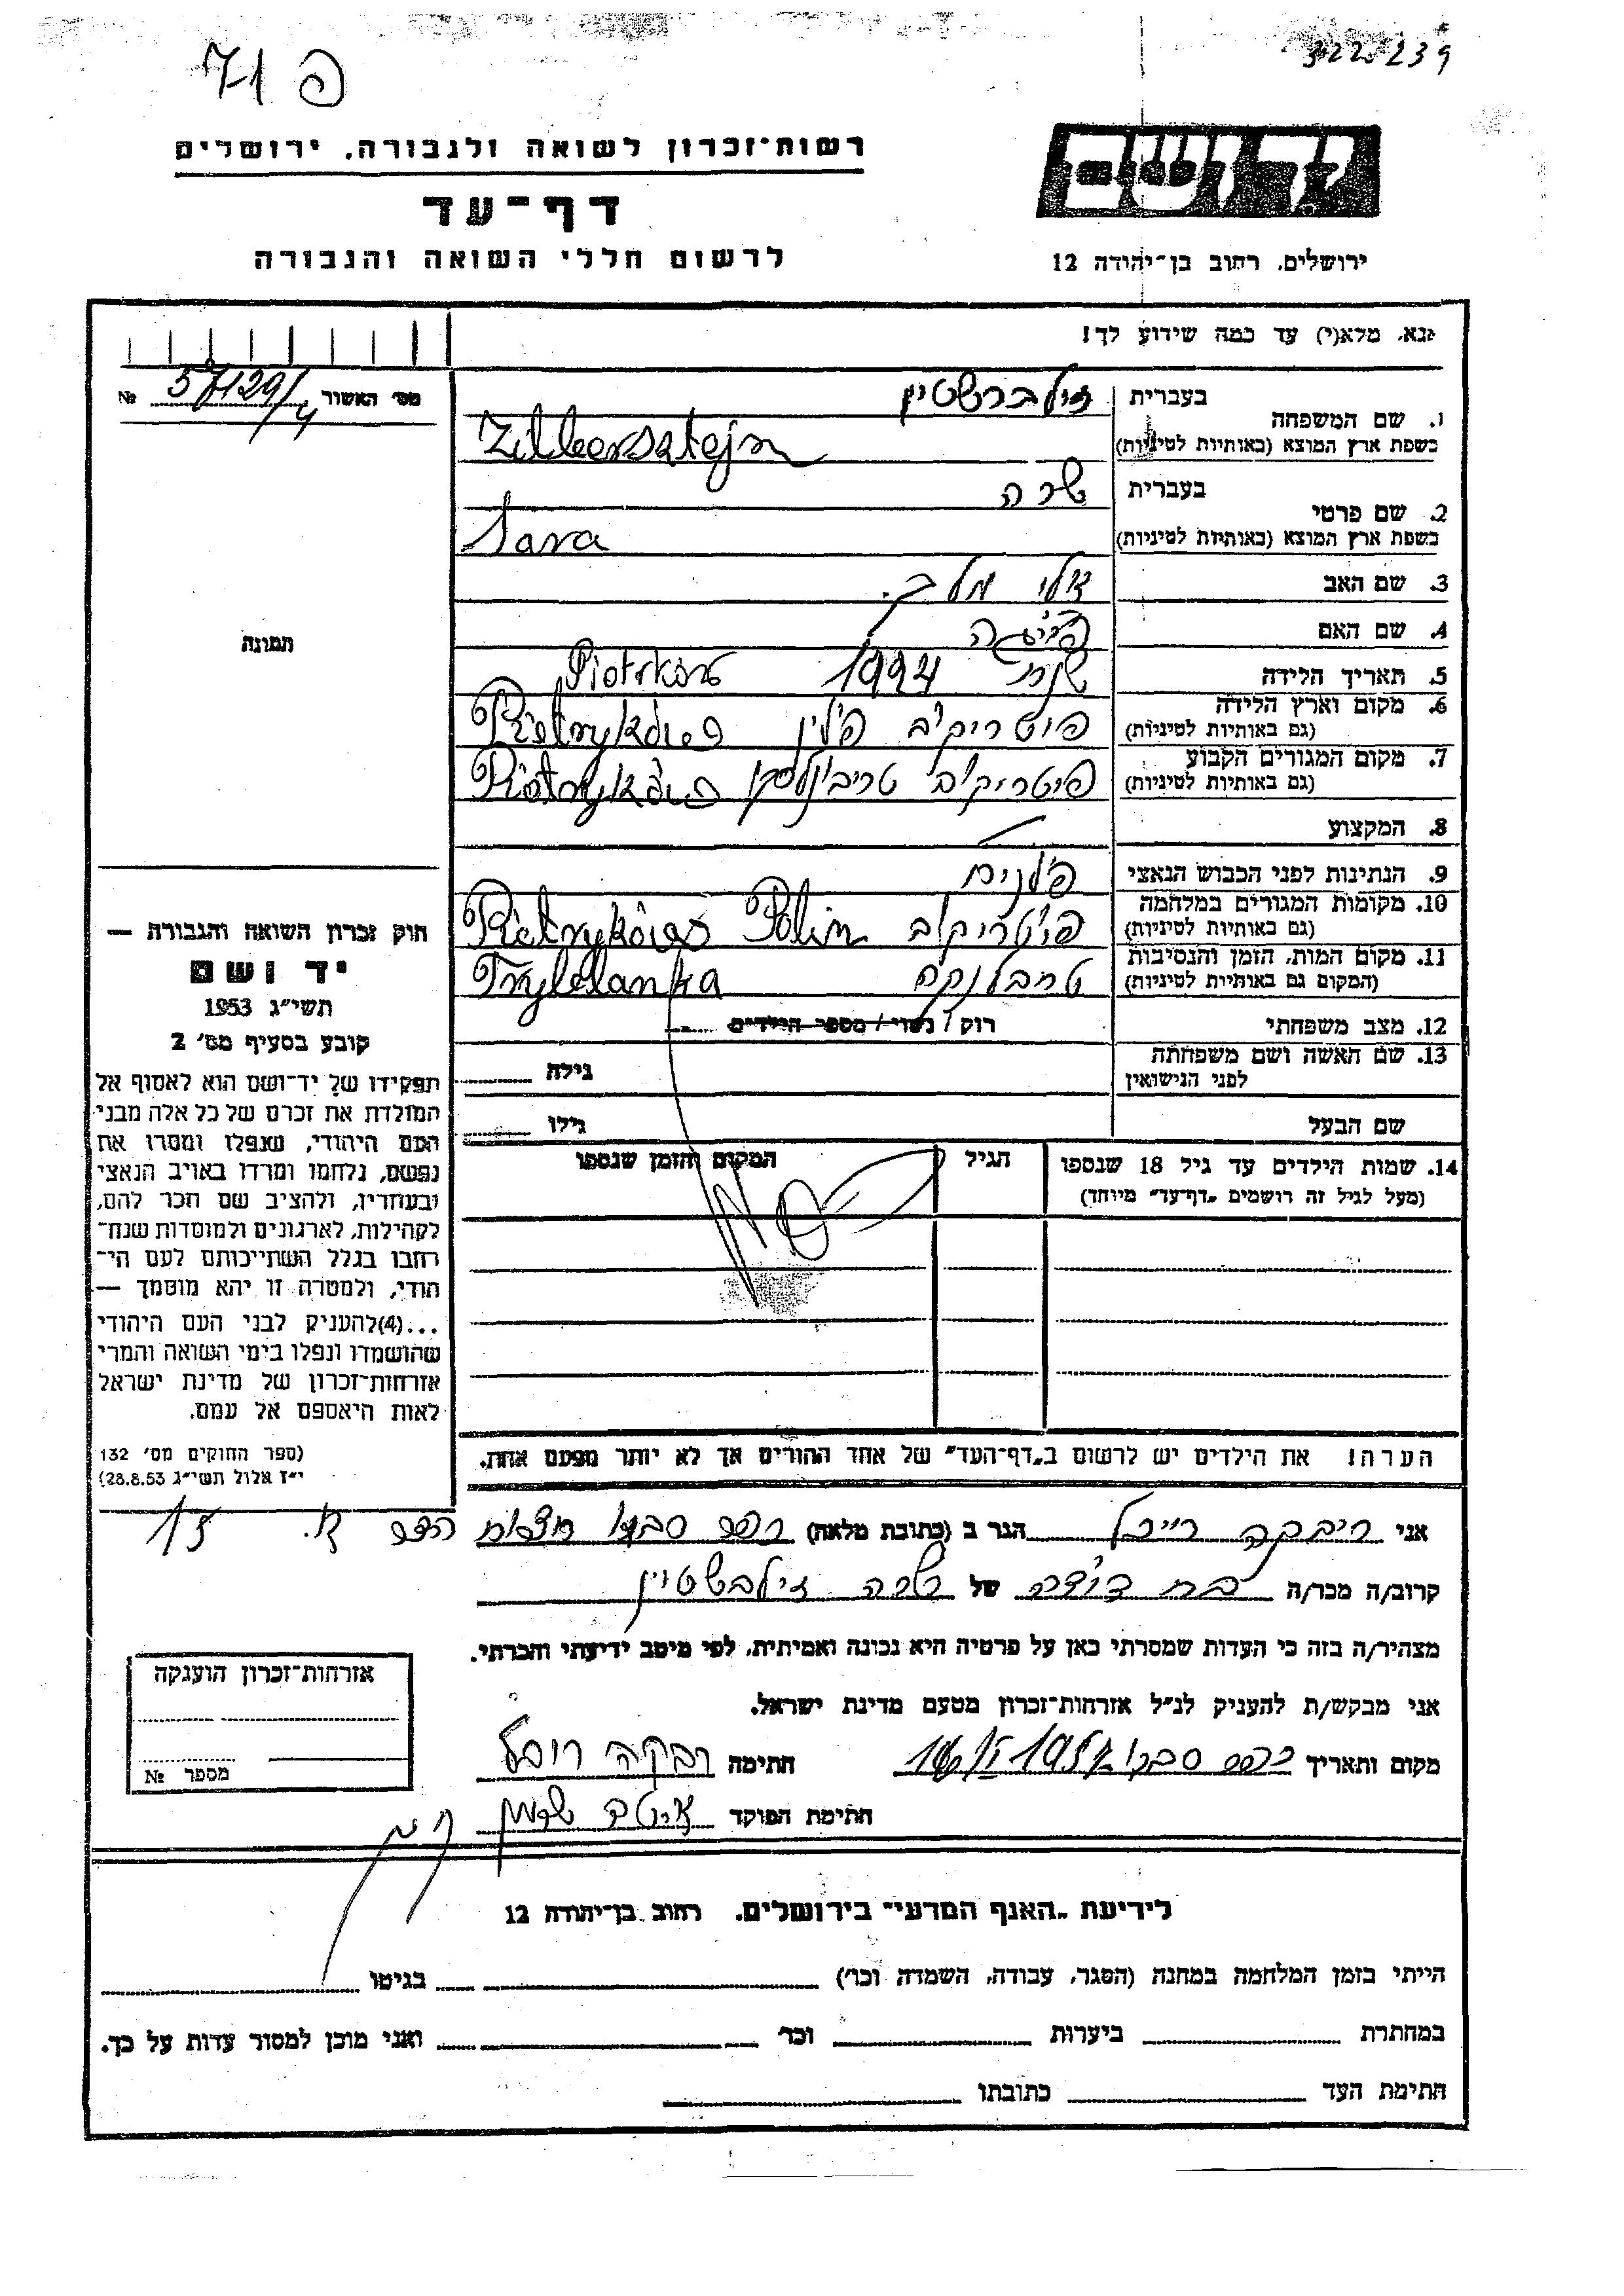 פ 71
3220239
רשות־זכרון לשואה ולגבורה, ירושלים
דף־עד
לרשום חללי השואה והגבורה
יד ושם
ירושלים, רחוב בן־יהודה 12
נא, מלא(י) עד כמה שידוע לך!
מס׳ האשור 57129/4 №
תמונה
1. שם המשפחה
בעברית זילברשטיין
בשפת ארץ המוצא (באותיות לטיניות) Zilbersztejn
2. שם פרטי
בעברית שרה
בשפת ארץ המוצא (באותיות לטיניות) Sara
3. שם האב
4. שם האם
5. תאריך הלידה שנת Piotrków
6. מקום וארץ הלידה פיוטריקוב פולין
(גם באותיות לטיניות)
7. מקום המגורים הקבוע פיוטריקוב טריבונלסקי
(גם באותיות לטיניות)
8. המקצוע
9. הנתינות לפני הכבוש הנאצי
10. מקומות המגורים במלחמה פיוטריקוב Polin
(גם באותיות לטיניות)
11. מקום המות, הזמן והנסיבות טרבלנקה
(המקום גם באותיות לטיניות) Tryblanka
12. מצב משפחתי רוק / נשוי / מספר הילדים
13. שם האשה ושם משפחתה
לפני הנישואין גילה
שם הבעל גילו
14. שמות הילדים עד גיל 18 שנספו הגיל המקום והזמן שנספו
(מעל לגיל זה רושמים „דף־עד״ מיוחד)
הערה! את הילדים יש לרשום ב„דף־העד״ של אחד ההורים אך לא יותר מפעם אחת.
חוק זכרון השואה והגבורה —
יד ושם
תשי״ג 1953
קובע בסעיף מס׳ 2
תפקידו של יד־ושם הוא לאסוף אל
המולדת את זכרם של כל אלה מבני
העם היהודי, שנפלו ומסרו את
נפשם, נלחמו ומרדו באויב הנאצי
ובעוזריו, ולהציב שם וזכר להם,
לקהילות, לארגונים ולמוסדות שנח־
רבו בגלל השתייכותם לעם הי־
הודי, ולמטרה זו יהא מוסמך —
...(4)להעניק לבני העם היהודי
שהושמדו ונפלו בימי השואה והמרי
אזרחות־זכרון של מדינת ישראל
לאות היאספם אל עמם.
(ספר החוקים מס׳ 132
י״ז אלול תשי״ג 28.8.53)
אני ריבקה רייכל הגר ב (כתובת מלאה) כפר סבא
קרוב/ה מכר/ה בת דודה של שרה זילברשטיין
מצהיר/ה בזה כי העדות שמסרתי כאן על פרטיה היא נכונה ואמיתית, לפי מיטב ידיעתי והכרתי.
אני מבקש/ת להעניק לנ״ל אזרחות־זכרון מטעם מדינת ישראל.
מקום ותאריך כפר סבא חתימה רבקה רייכל
חתימת הפוקד
אזרחות־זכרון הוענקה
מספר №
לידיעת „האגף המדעי״ בירושלים, רחוב בן־יהודה 12
הייתי בזמן המלחמה במחנה (הסגר, עבודה, השמדה וכו׳) בגיטו
במחתרת ביערות וכו׳ ואני מוכן למסור עדות על כך.
חתימת העד כתובתו